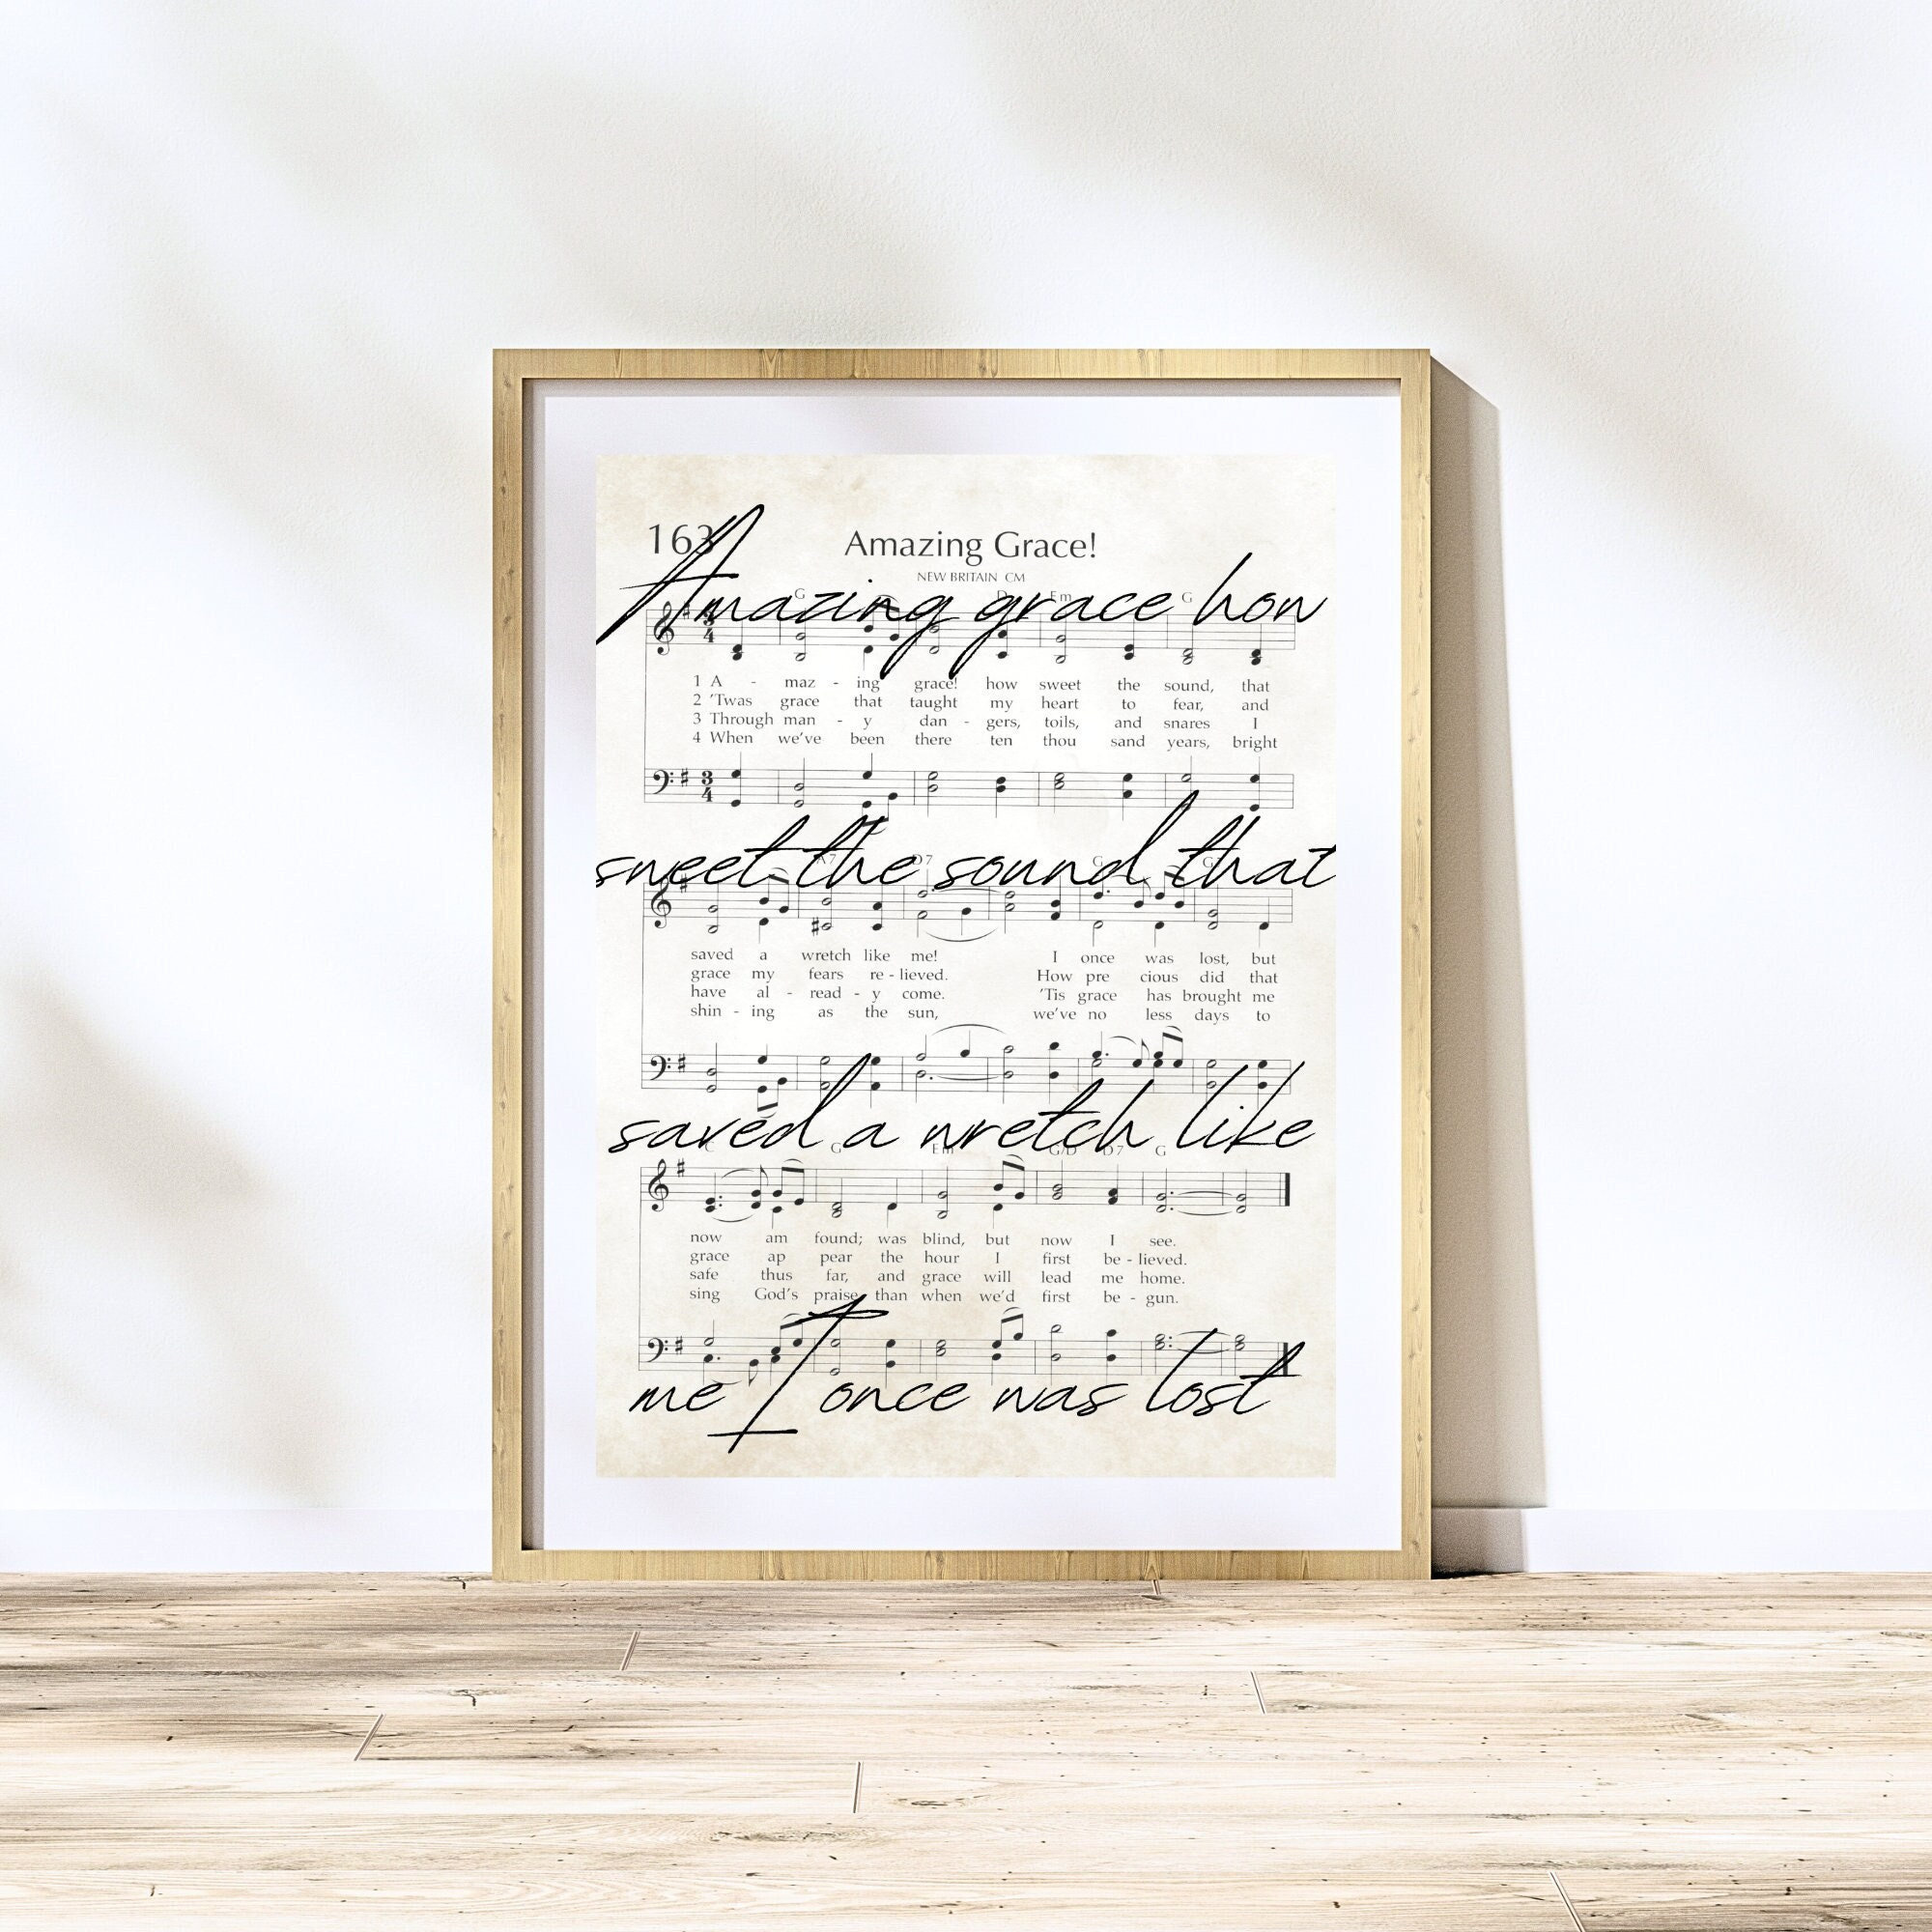 163
Amazing Grace!
NEW BRITAIN CM
Amazing grace how
G D Em G
3 4
1 A - maz - ing grace! how sweet the sound, that
2 'Twas grace that taught my heart to fear, and
3 Through man - y dan - gers, toils, and snares I
4 When we've been there ten thou sand years, bright
3 4
sweet the sound that
A7 D7 G
saved a wretch like me! I once was lost, but
grace my fears re - lieved. How pre cious did that
have al - read - y come. 'Tis grace has brought me
shin - ing as the sun, we've no less days to
saved a wretch like
C G Em G/D D7 G
now am found; was blind, but now I see.
grace ap pear the hour I first be - lieved.
safe thus far, and grace will lead me home.
sing God's praise than when we'd first be - gun.
me I once was lost